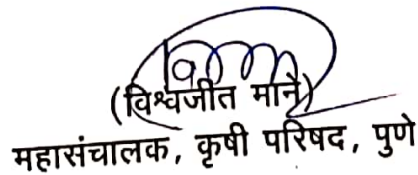 (विश्वजीत माने)
महासंचालक, कृषी परिषद, पुणे